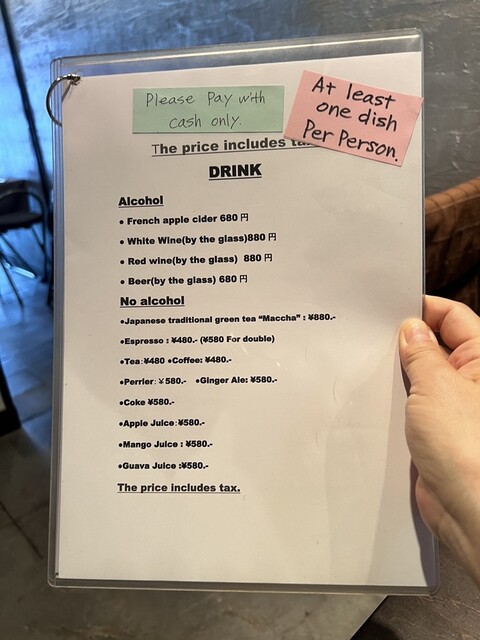 Please Pay with
cash only.
At least
one dish
Per Person.
The price includes
DRINK
Alcohol
• French apple cider 680 円
• White Wine(by the glass)880 円
• Red wine(by the glass) 880 円
• Beer(by the glass) 680 円
No alcohol
•Japanese traditional green tea “Maccha” : ¥880.-
•Espresso : ¥480.- (¥580 For double)
•Tea:¥480 •Coffee: ¥480.-
•Perrier: ¥580.- •Ginger Ale: ¥580.-
•Coke ¥580.-
•Apple Juice:¥580.-
•Mango Juice : ¥580.-
•Guava Juice :¥580.-
The price includes tax.